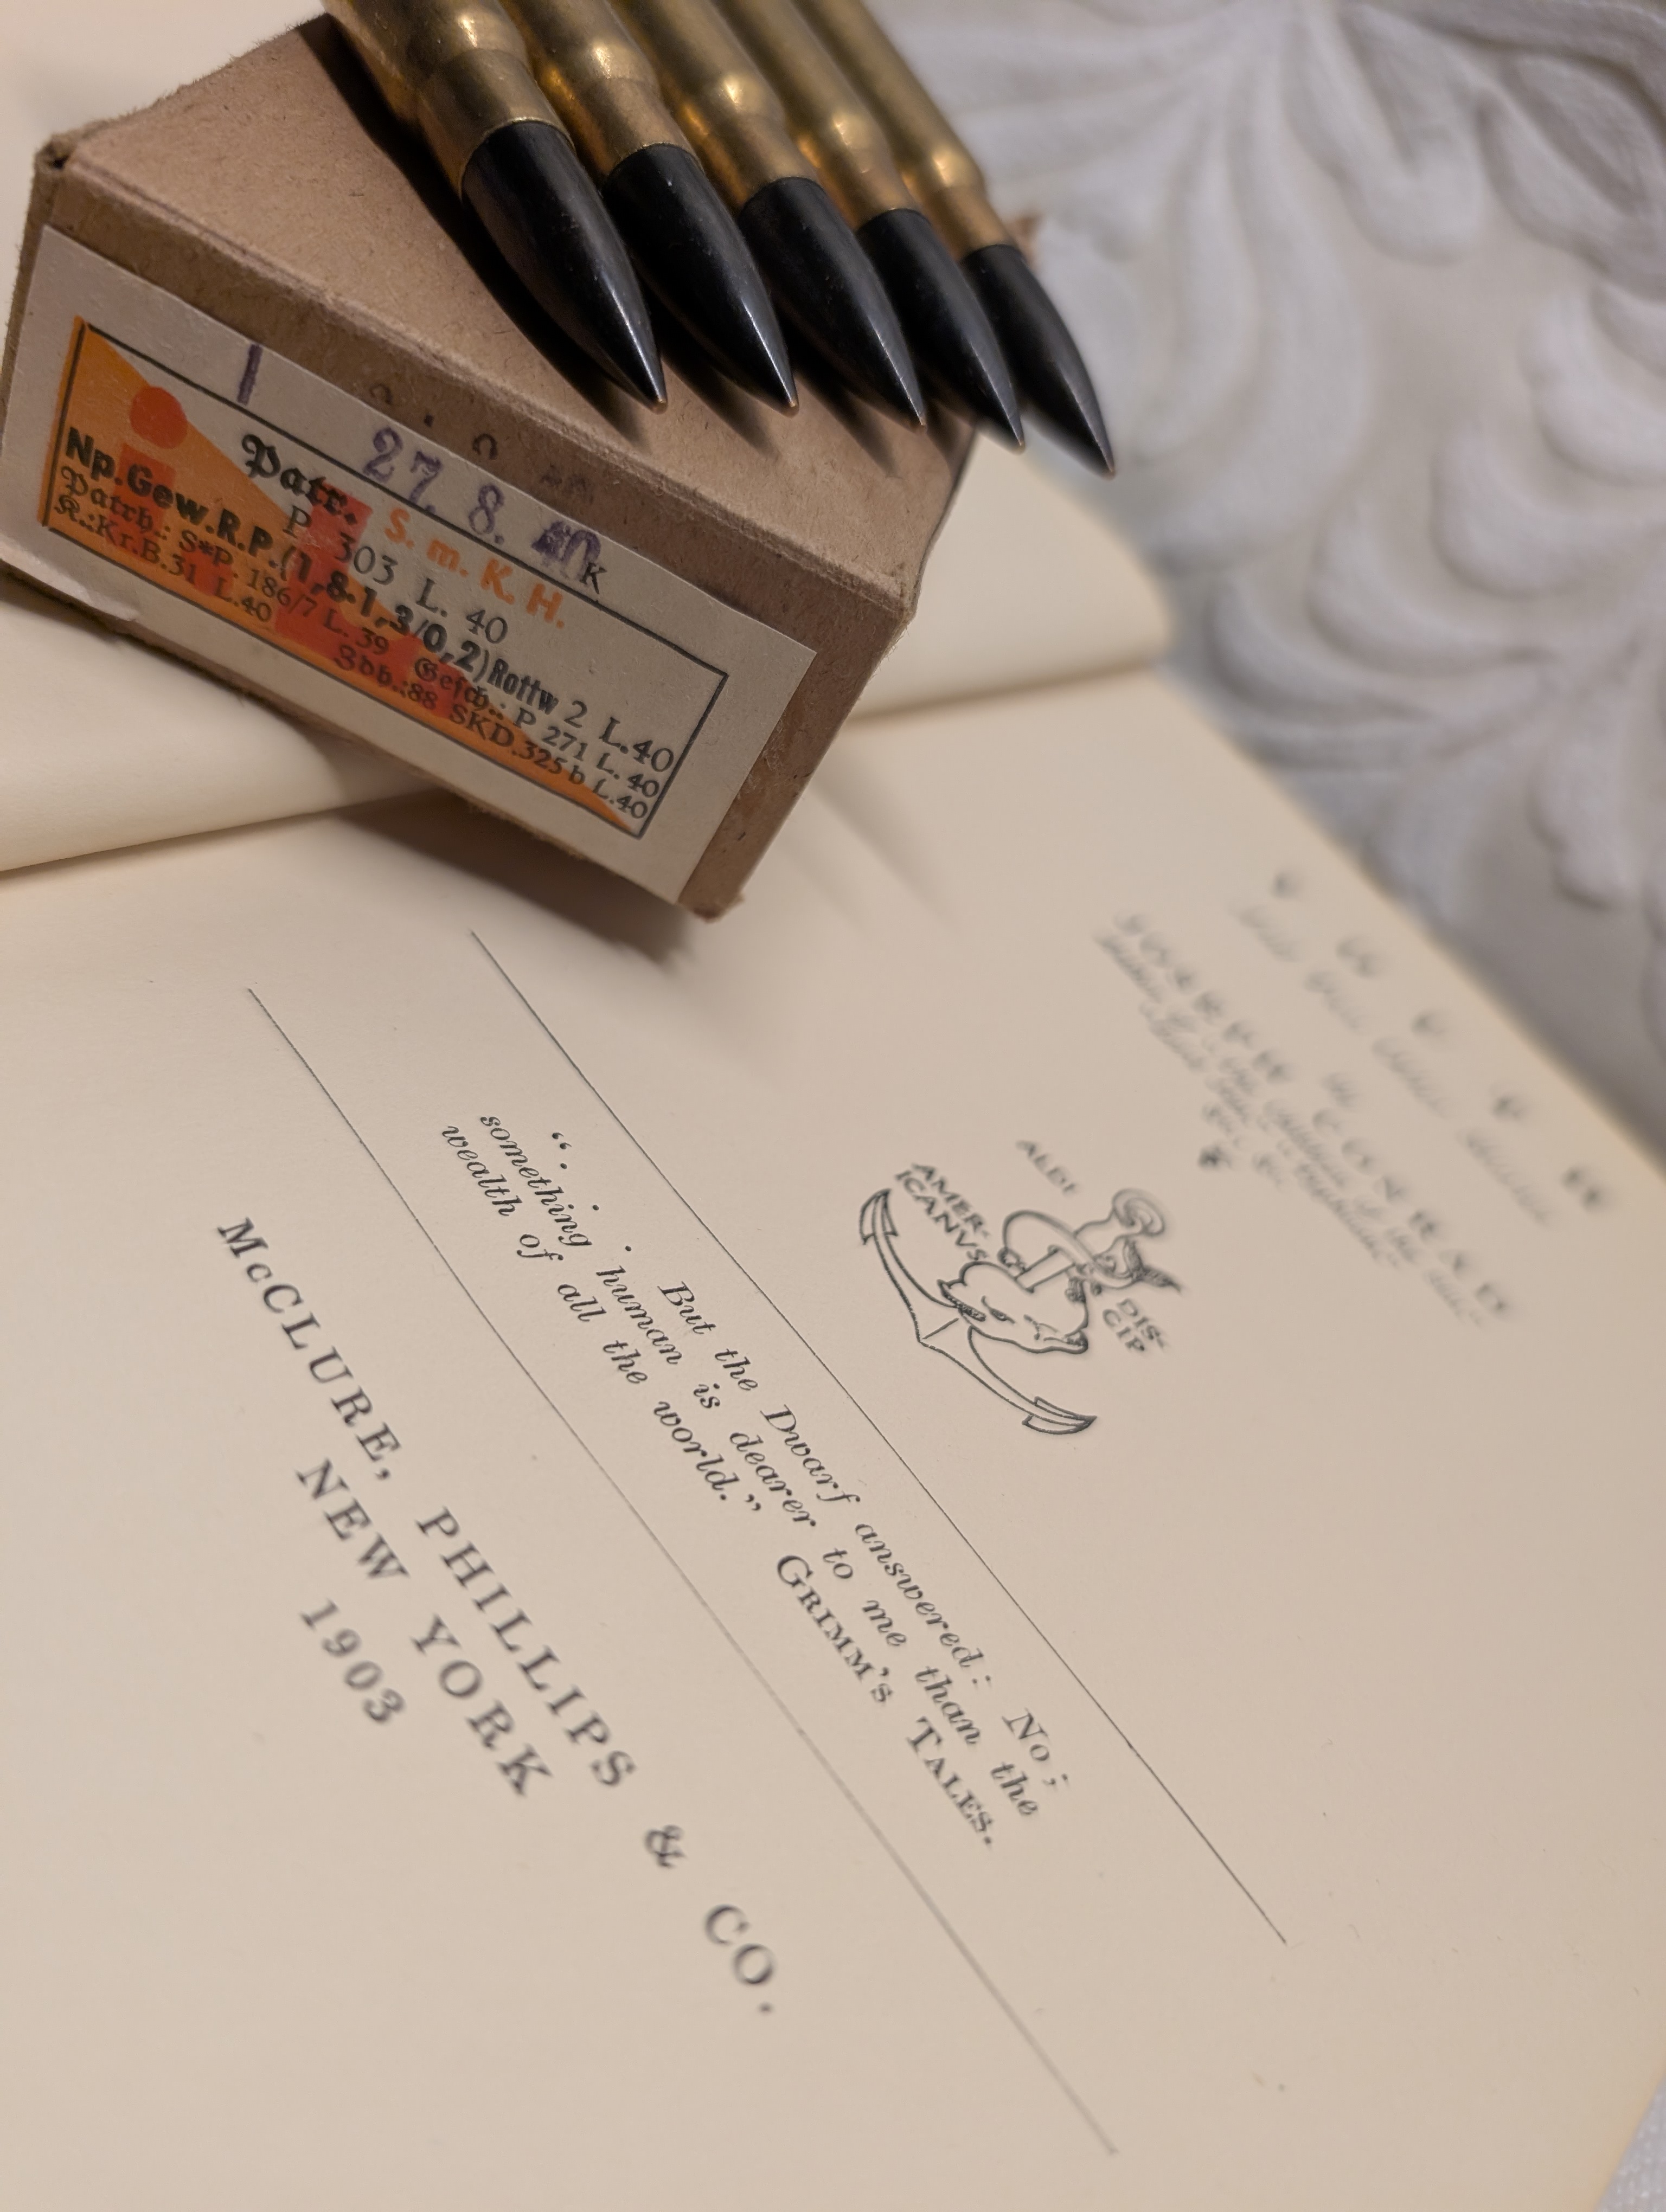 1
27. 8. 40 K
Patr. S. m. K. H.
P 303 L. 40
Np.Gew.R.P.(1,8·1,3/0,2) Rottw 2 L.40
Patrh.: S*P. 186/7 L. 39 Gesch.: P 271 L. 40
R.:Kr.B.31 L.40 Zdh.:88 SKD.325b L.40
JOSEPH CONRAD
ALDI
DIS-
CIP
AMER-
ICANVS
“ . . . But the Dwarf answered: No;
something human is dearer to me than the
wealth of all the world.” GRIMM'S TALES.
McCLURE, PHILLIPS & CO.
NEW YORK
1903